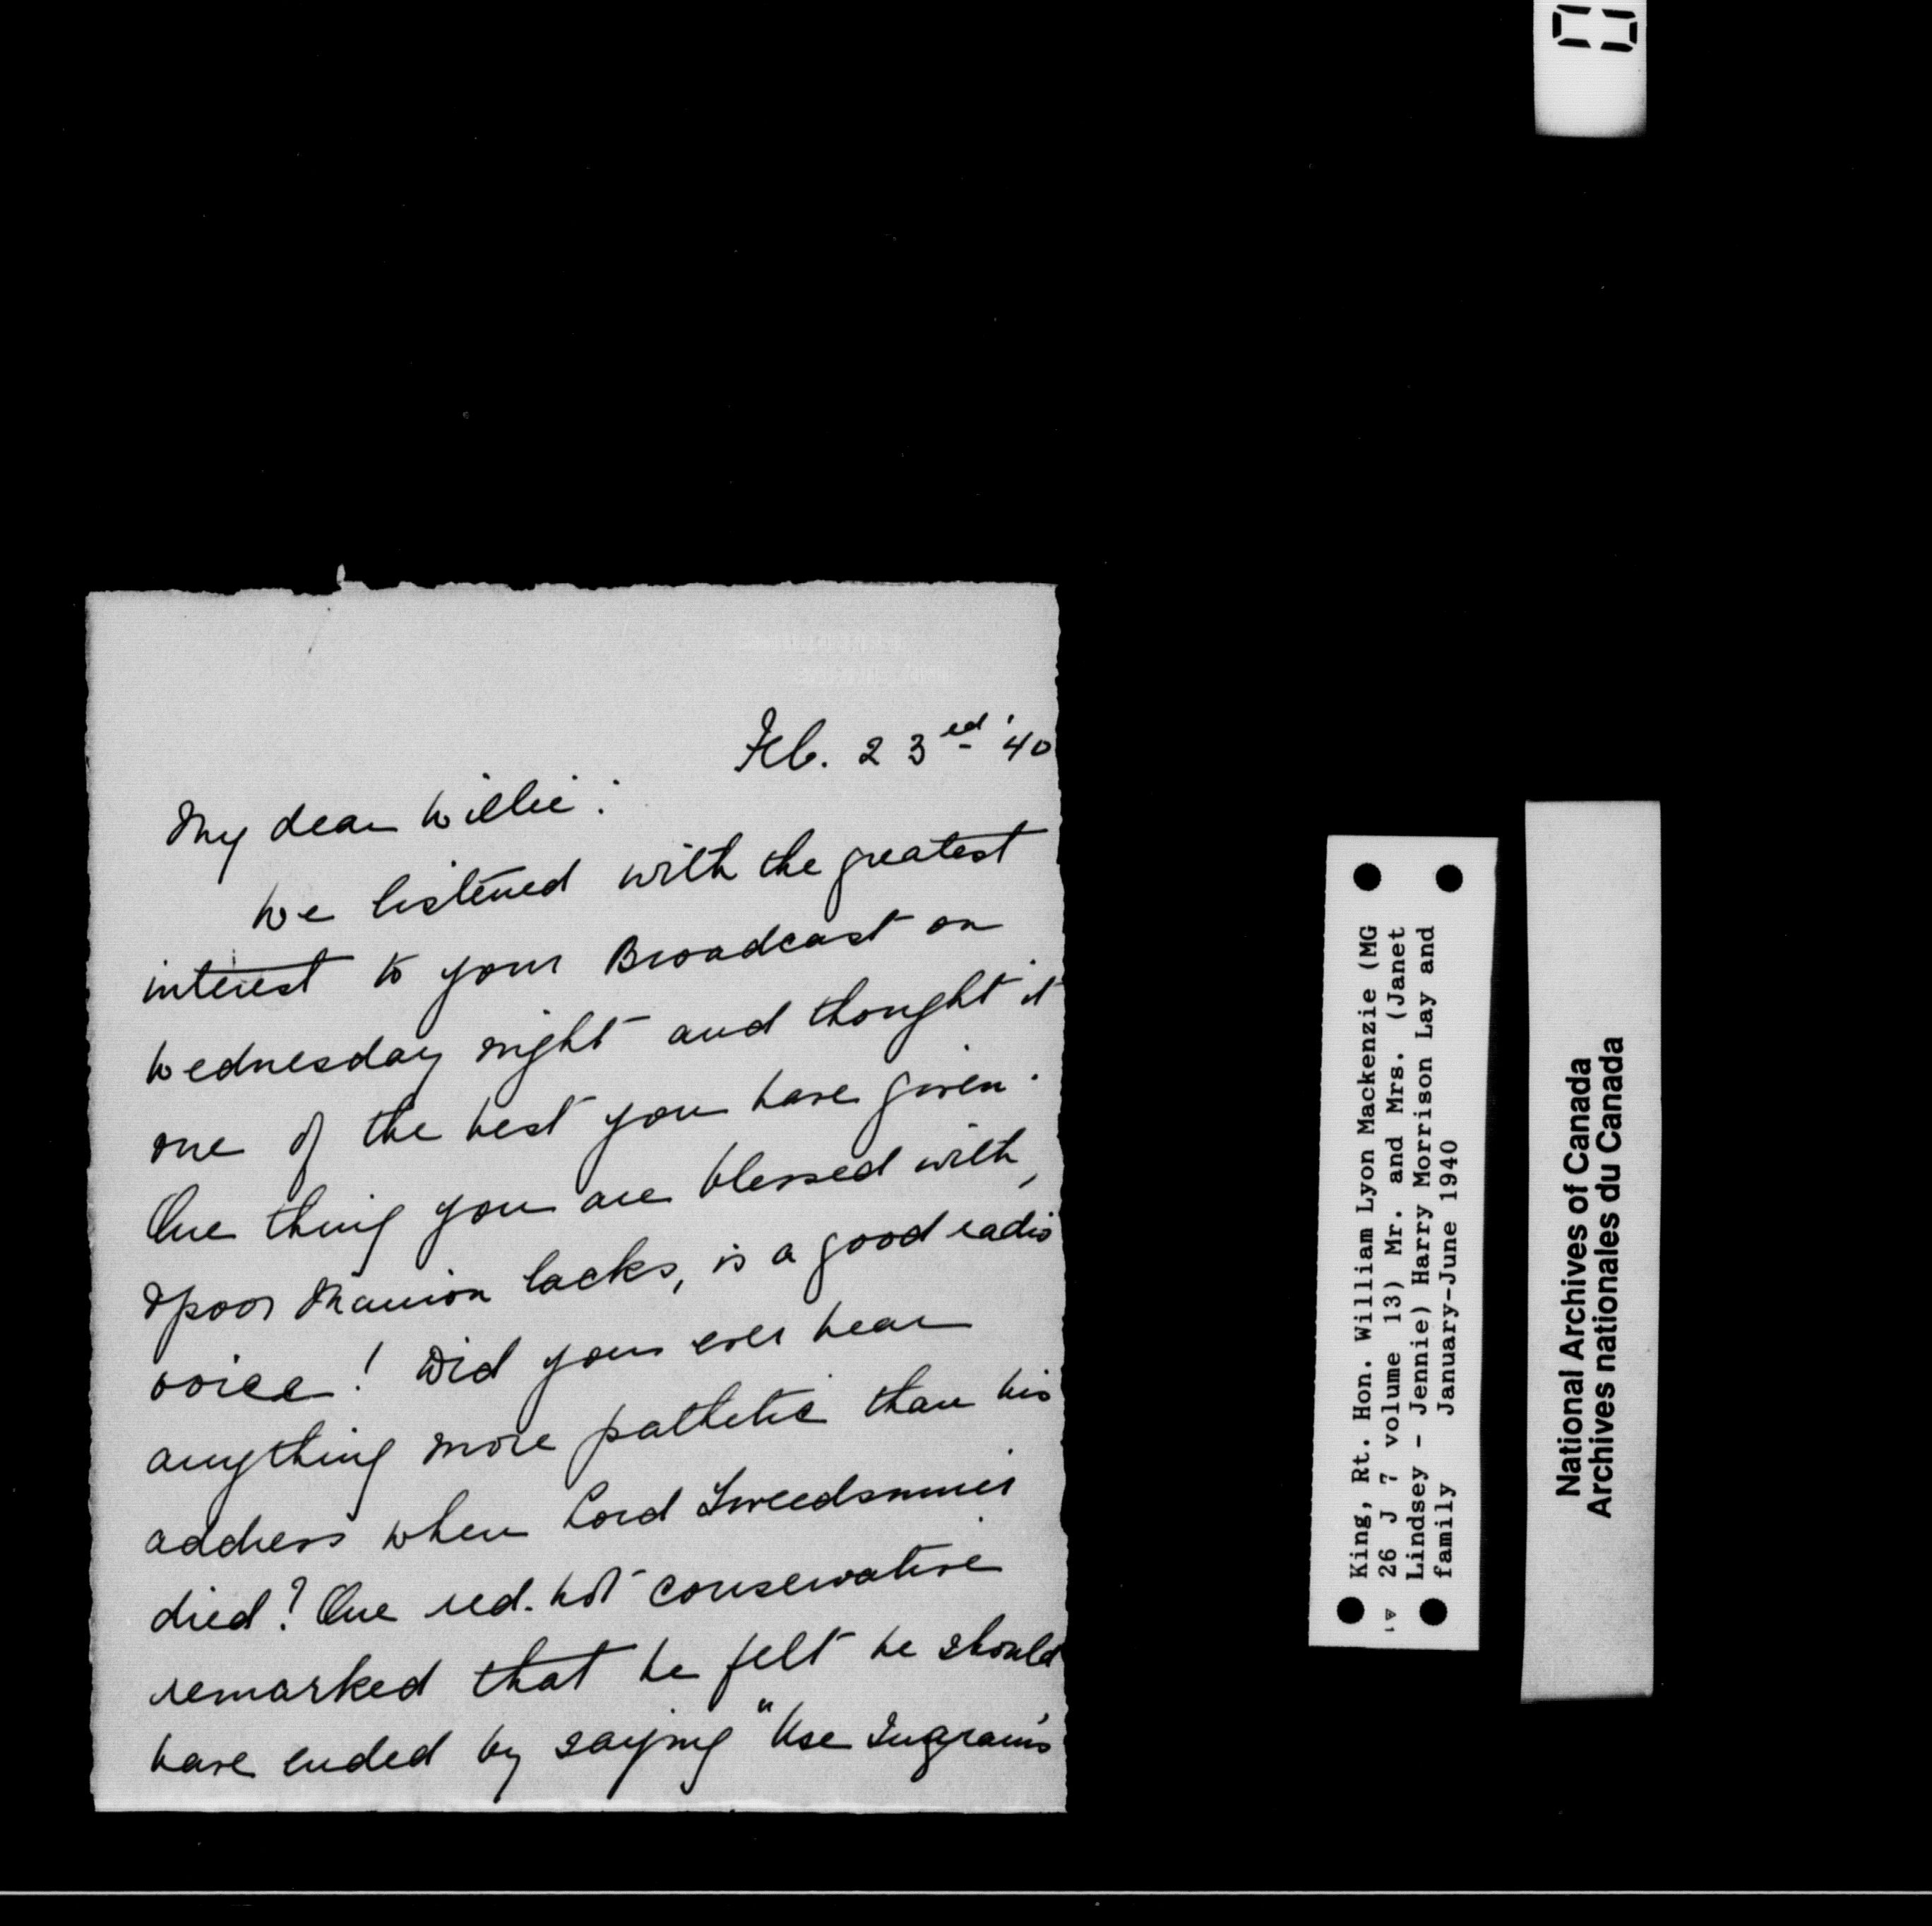 Feb. 23ed '40
My dear Willie:
We listened with the greatest
interest to your Broadcast on
Wednesday night and thought it
one of the best you have given.
One thing you are blessed with,
& poor Manion lacks, is a good radio
voice! Did you ever hear
anything more pathetic than his
address when Lord Tweedsmuir
died? One red-hot conservative
remarked that he felt he should
have ended by saying "Use Ingram's
King, Rt. Hon. William Lyon Mackenzie (MG
26 J 7 volume 13) Mr. and Mrs. (Janet
Lindsey - Jennie) Harry Morrison Lay and
family January-June 1940
National Archives of Canada
Archives nationales du Canada